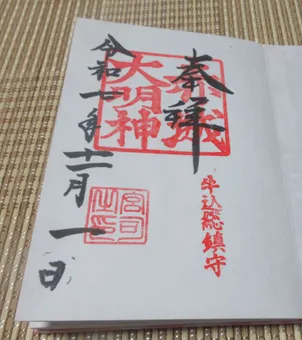 奉拝
赤城
大明神
牛込総鎮守
令和一年十二月一日
宮司
之印